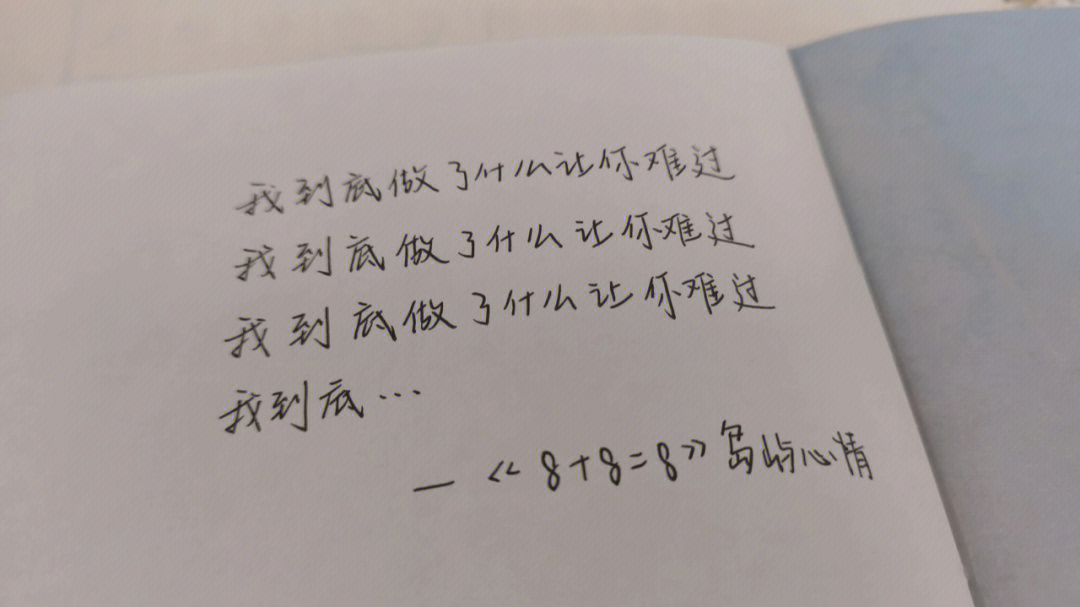 我到底做了什么让你难过
我到底做了什么让你难过
我到底做了什么让你难过
我到底…
—《8+8=8》岛屿心情